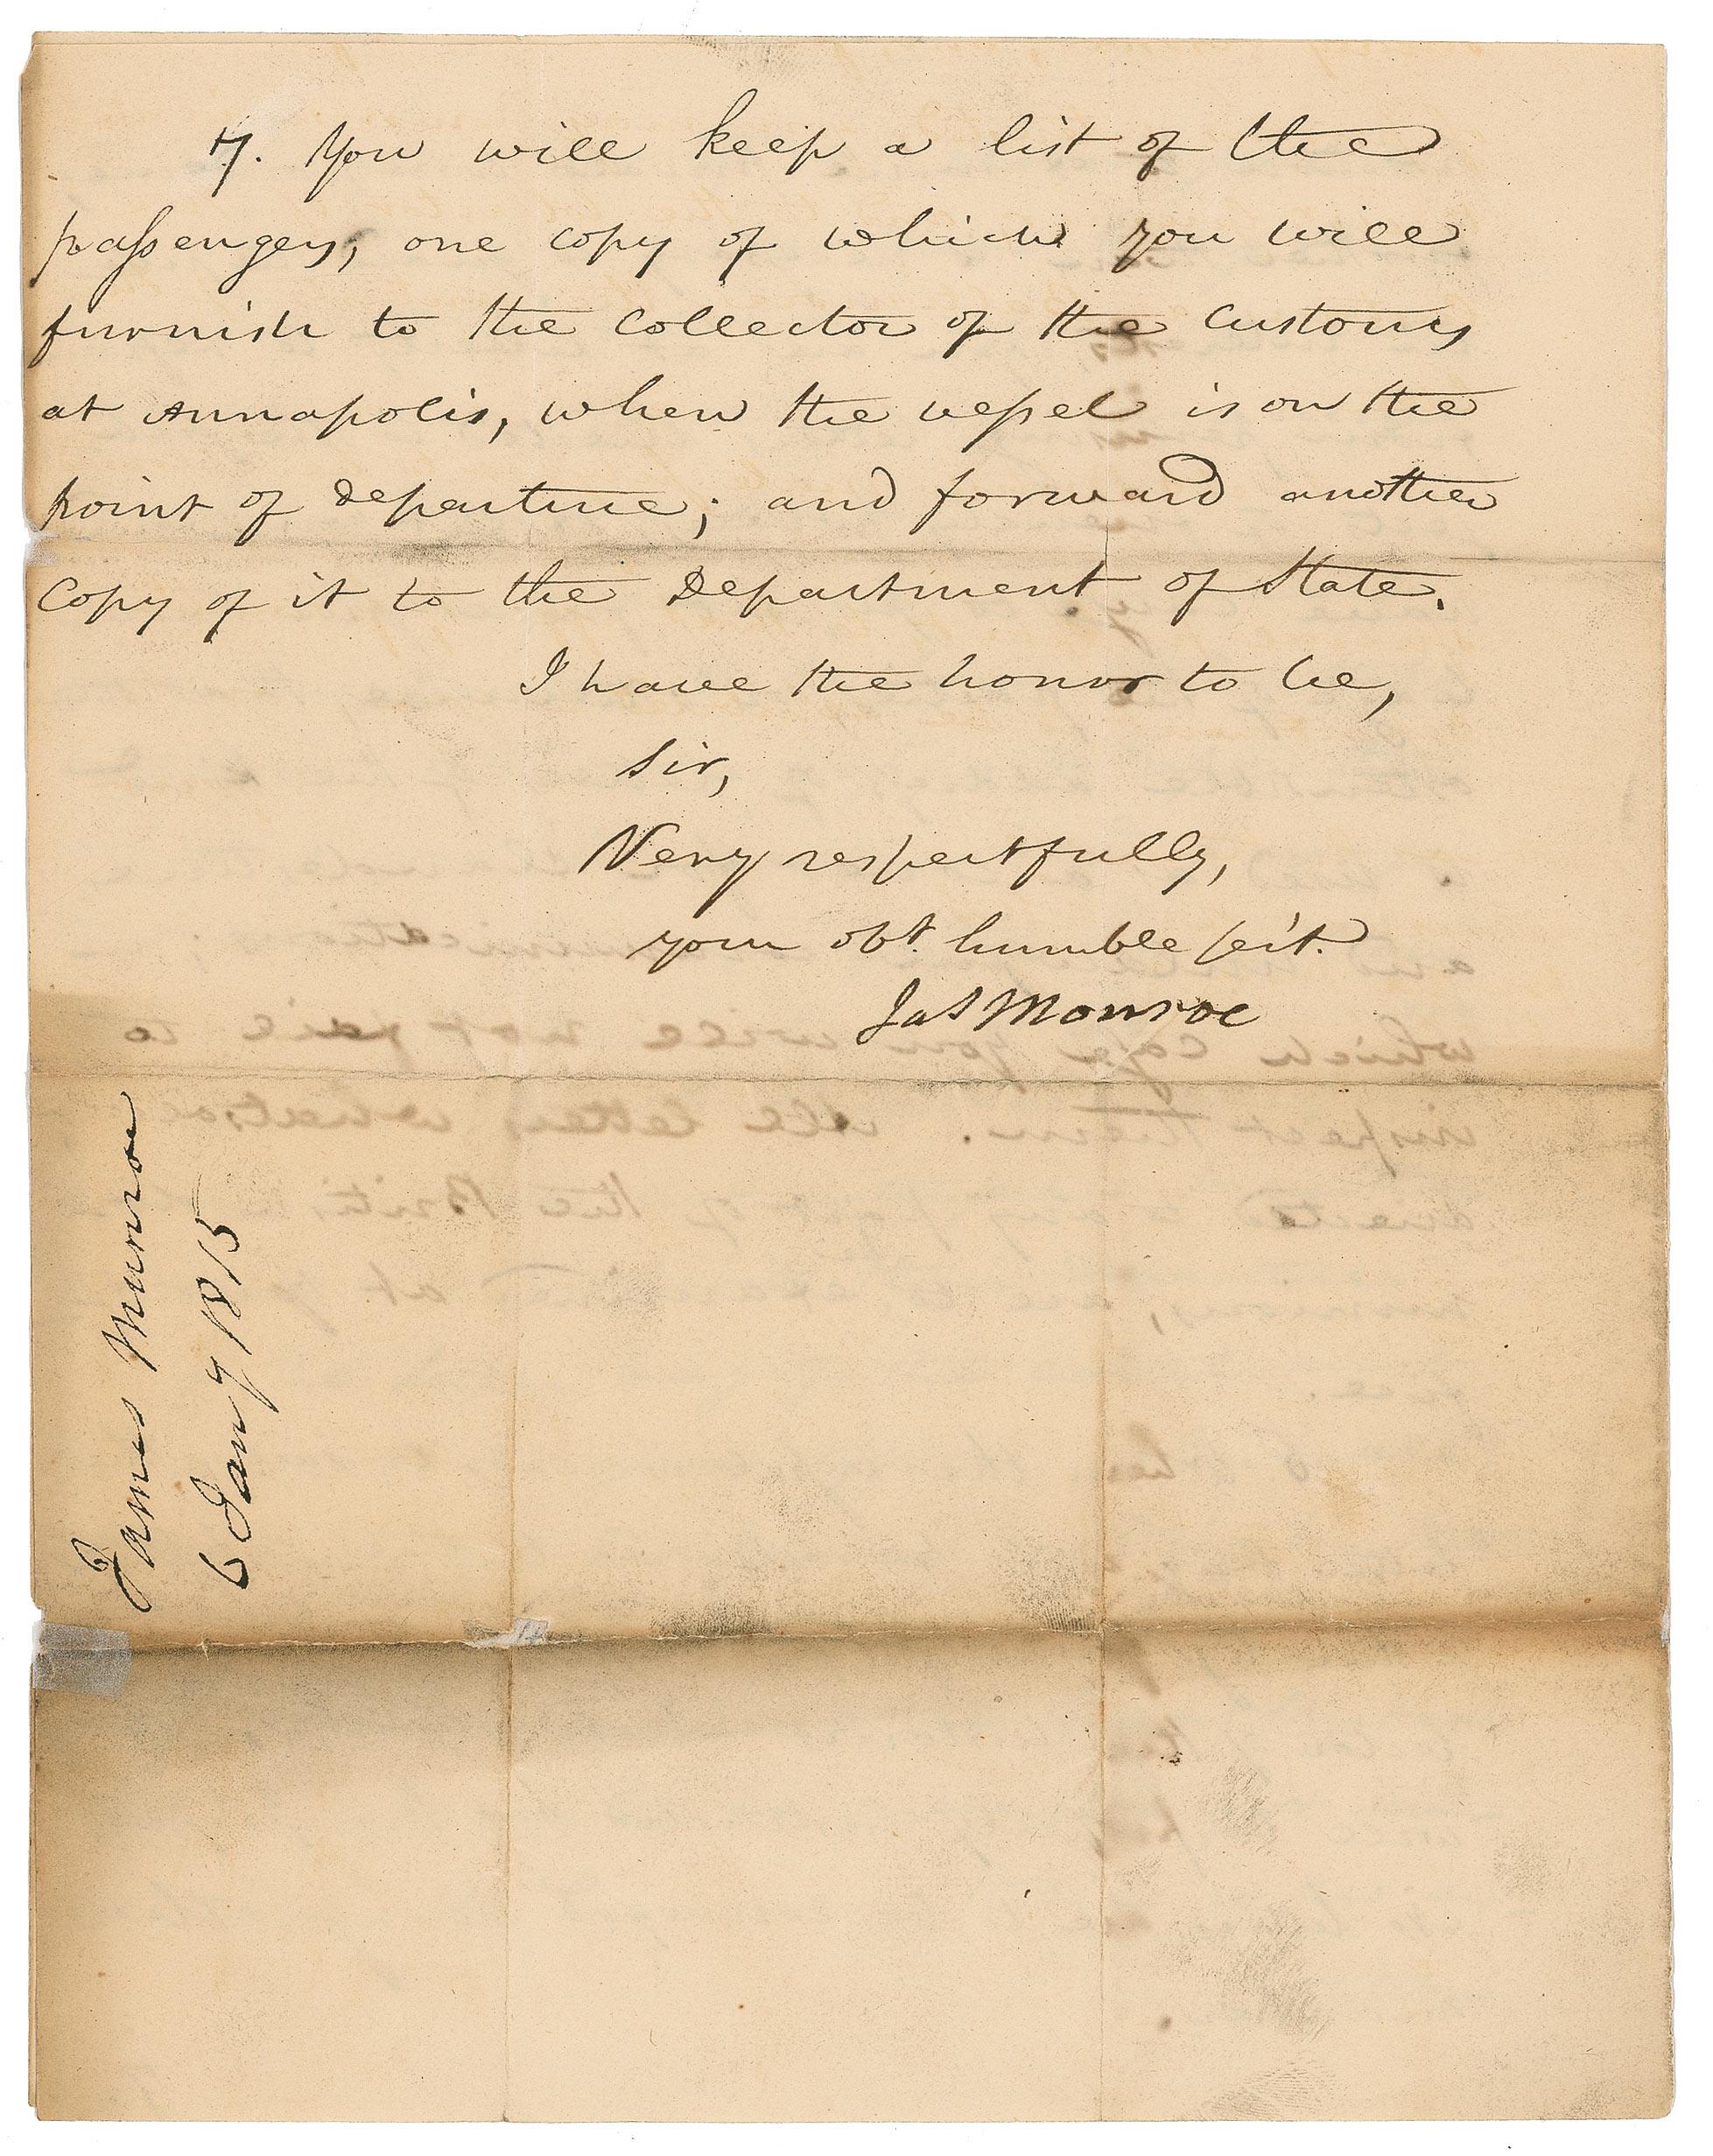 7. You will keep a list of the
passengers, one copy of which you will
furnish to the Collector of the Customs
at Annapolis, when the vessel is on the
point of departure; and forward another
Copy of it to the Department of State.
I have the honor to be,
Sir,
Very respectfully,
your obt. humble sert.
Jas Monroe
James Munroe
6 Jany 1815